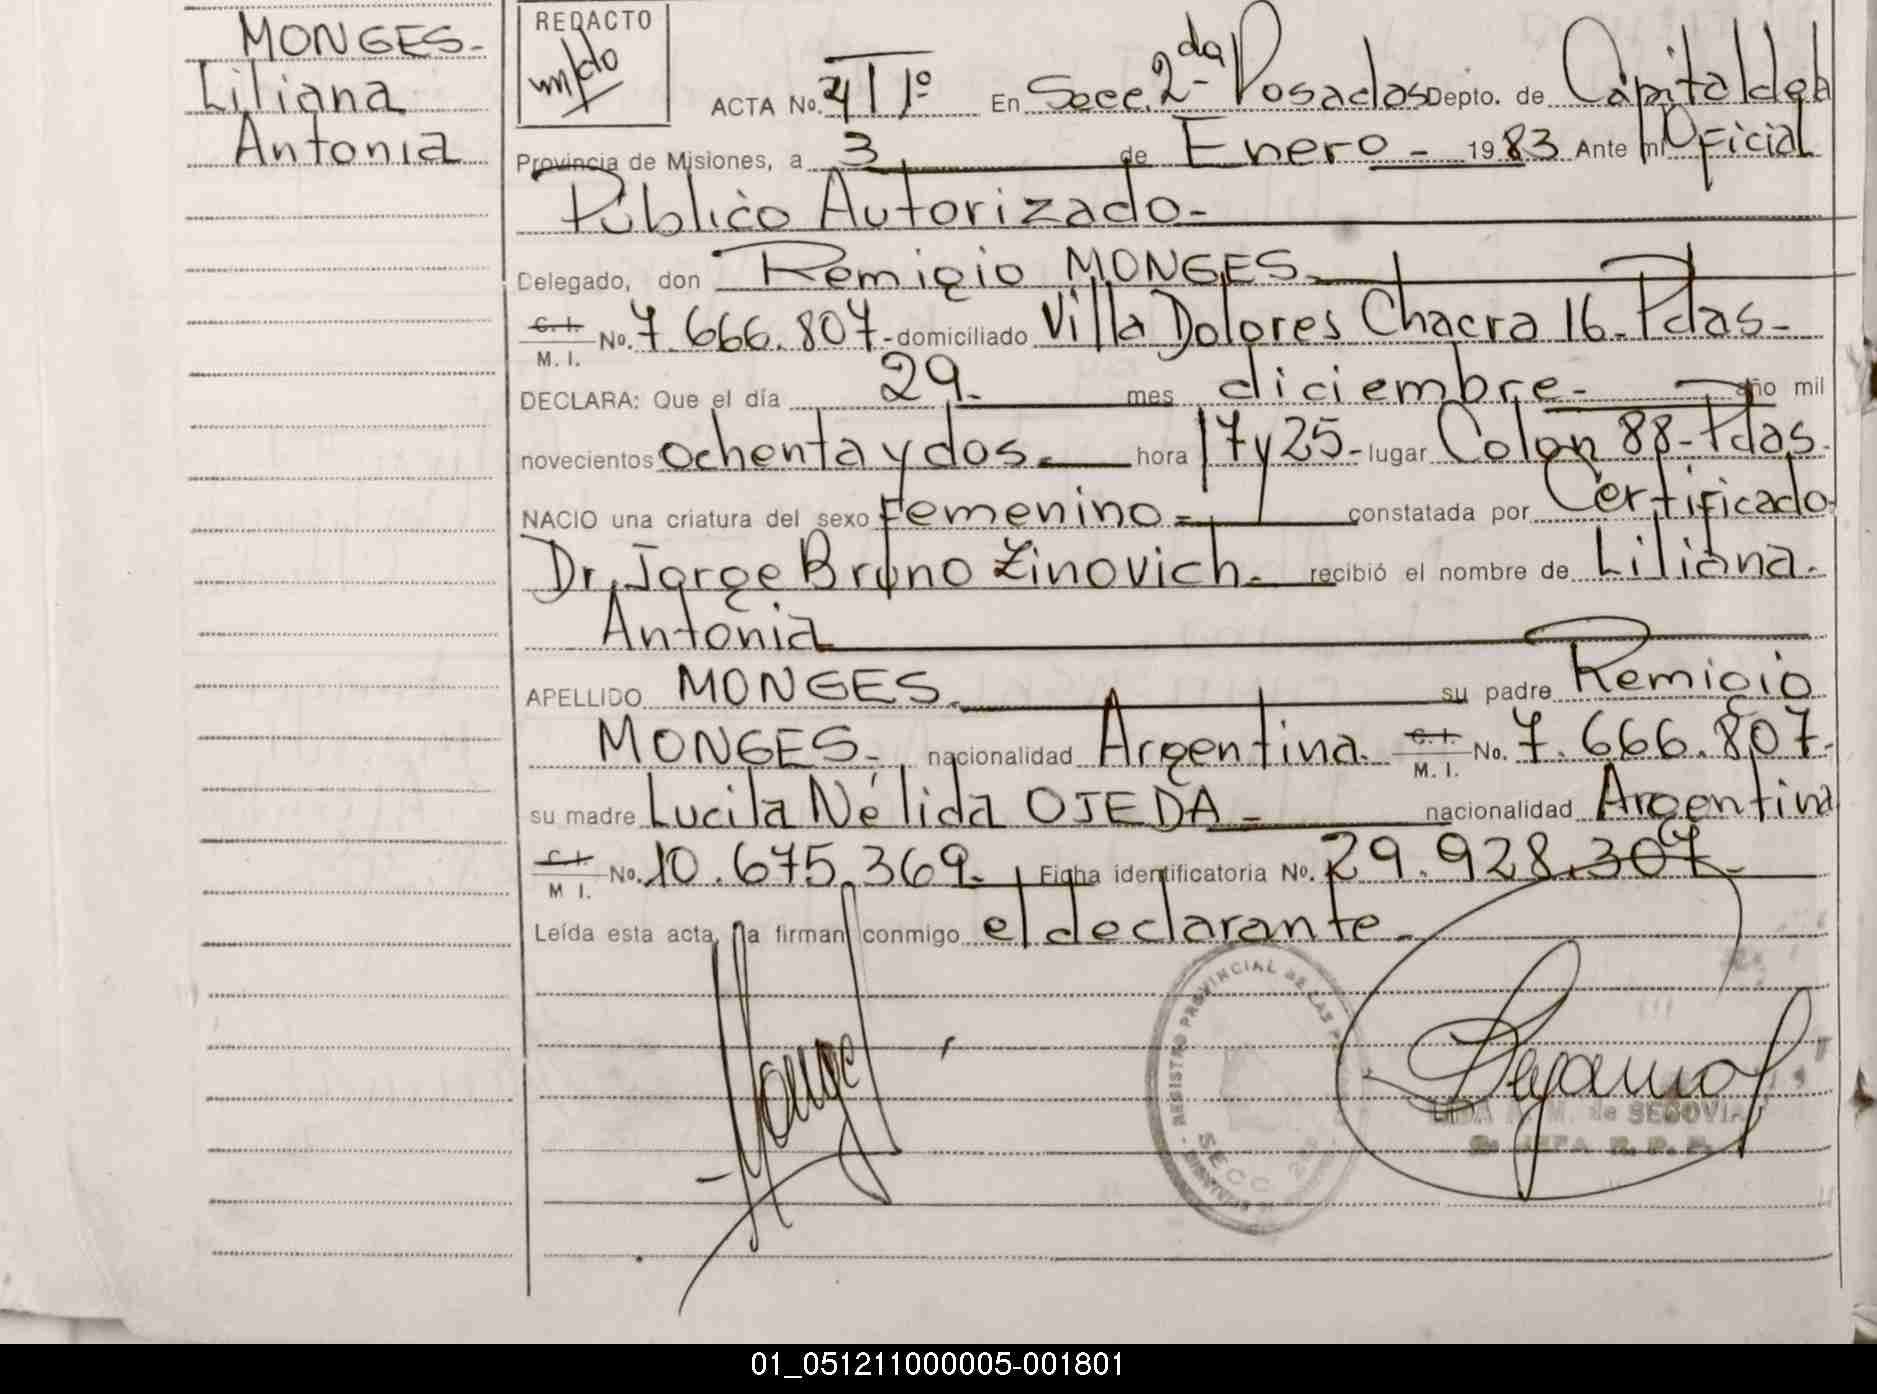 MONGES-
Liliana
Antonia
REDACTO
ACTA No. 4 T 1º En Secc. 2da Posadas Depto. de Capital de la
Provincia de Misiones, a 3 de Enero - 19 83 Ante mi Oficial
Público Autorizado-
Delegado, don Remigio MONGES-
C. I.
M. I.
No. 7.666.807- domiciliado Villa Dolores Chacra 16- Pdas-
DECLARA: Que el día 29- mes diciembre- año mil
novecientos ochenta y dos- hora 17 y 25- lugar Colon 88- Pdas-
NACIO una criatura del sexo Femenino- constatada por Certificado
Dr. Jorge Bruno Zinovich- recibió el nombre de Liliana-
Antonia
APELLIDO MONGES- su padre Remigio
MONGES- nacionalidad Argentina- C. I. M. I. No. 7.666.807-
su madre Lucila Nélida OJEDA- nacionalidad Argentina
C. I. M. I. No. 10.675.369- Ficha identificatoria No. 29.928.307-
Leída esta acta, la firman conmigo el declarante-
Monges
REGISTRO PROVINCIAL DE LAS
SECC. 2da
LIDA M. de SEGOVIA
01_051211000005-001801